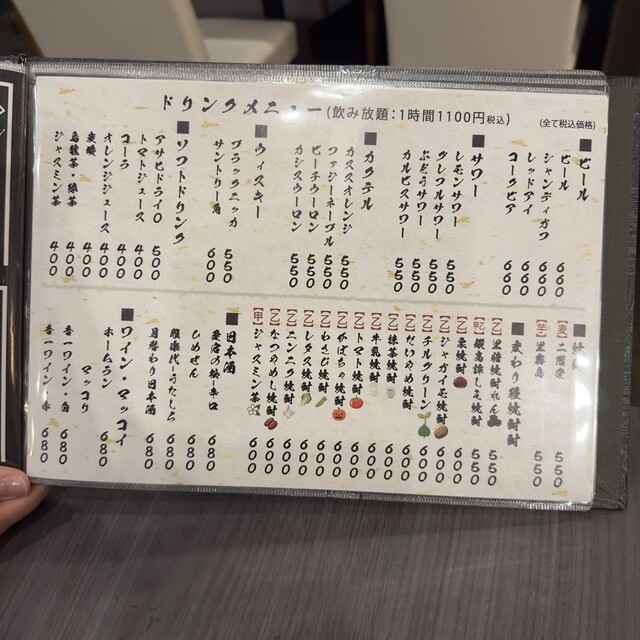 ドリンクメニュー(飲み放題:1時間1100円税込)
(全て税込価格)
■ビール
ビール 660
シャンディガフ 660
レッドアイ 660
コークビア 660
■サワー
レモンサワー 550
グレフルサワー 550
ぶどうサワー 550
カルピスサワー 550
■カクテル
カシスオレンジ 550
ファジーネーブル 550
ピーチウーロン 550
カシスウーロン 550
■ウィスキー
ブラックニッカ 550
サントリー角 600
■ソフトドリンク
アサヒドライ0 500
トマトジュース 400
コーラ 400
オレンジジュース 400
烏龍茶・緑茶 400
ジャスミン茶 400
【麦】二階堂 550
【芋】黒霧島 550
■変わり種焼酎
【乙】黒糖焼酎れんと 550
【乙】栗焼酎 600
【乙】ジャガイモ焼酎 600
【乙】チルグリーン 600
【乙】だいやめ焼酎 600
【乙】抹茶焼酎 600
【乙】牛乳焼酎 600
【乙】トマト焼酎 600
【乙】かぼちゃ焼酎 600
【乙】わさび焼酎 600
【乙】レタス焼酎 600
【乙】ニンニク焼酎 600
【乙】なつめやし焼酎 600
【甲】ジャスミン茶 600
■日本酒
680
ひめぜん 680
680
月替わり日本酒 680
■ワイン・マッコイ
ホームラン
マッコリ 680
杏一ワイン・白 680
杏一ワイン・赤 680